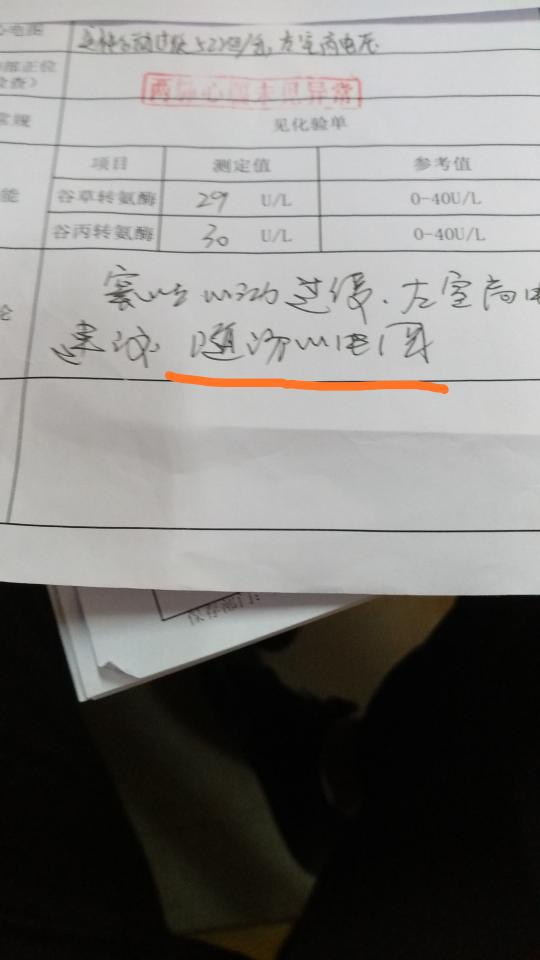 心电图
窦性心动过缓 52次/分，左室高电压
部正位
检查）
两肺心膈未见异常
常规
见化验单
项目 测定值 参考值
能
谷草转氨酶 29 U/L 0-40U/L
谷丙转氨酶 30 U/L 0-40U/L
论
窦性心动过缓、左室高电
建议 随访心电图
保存部门：